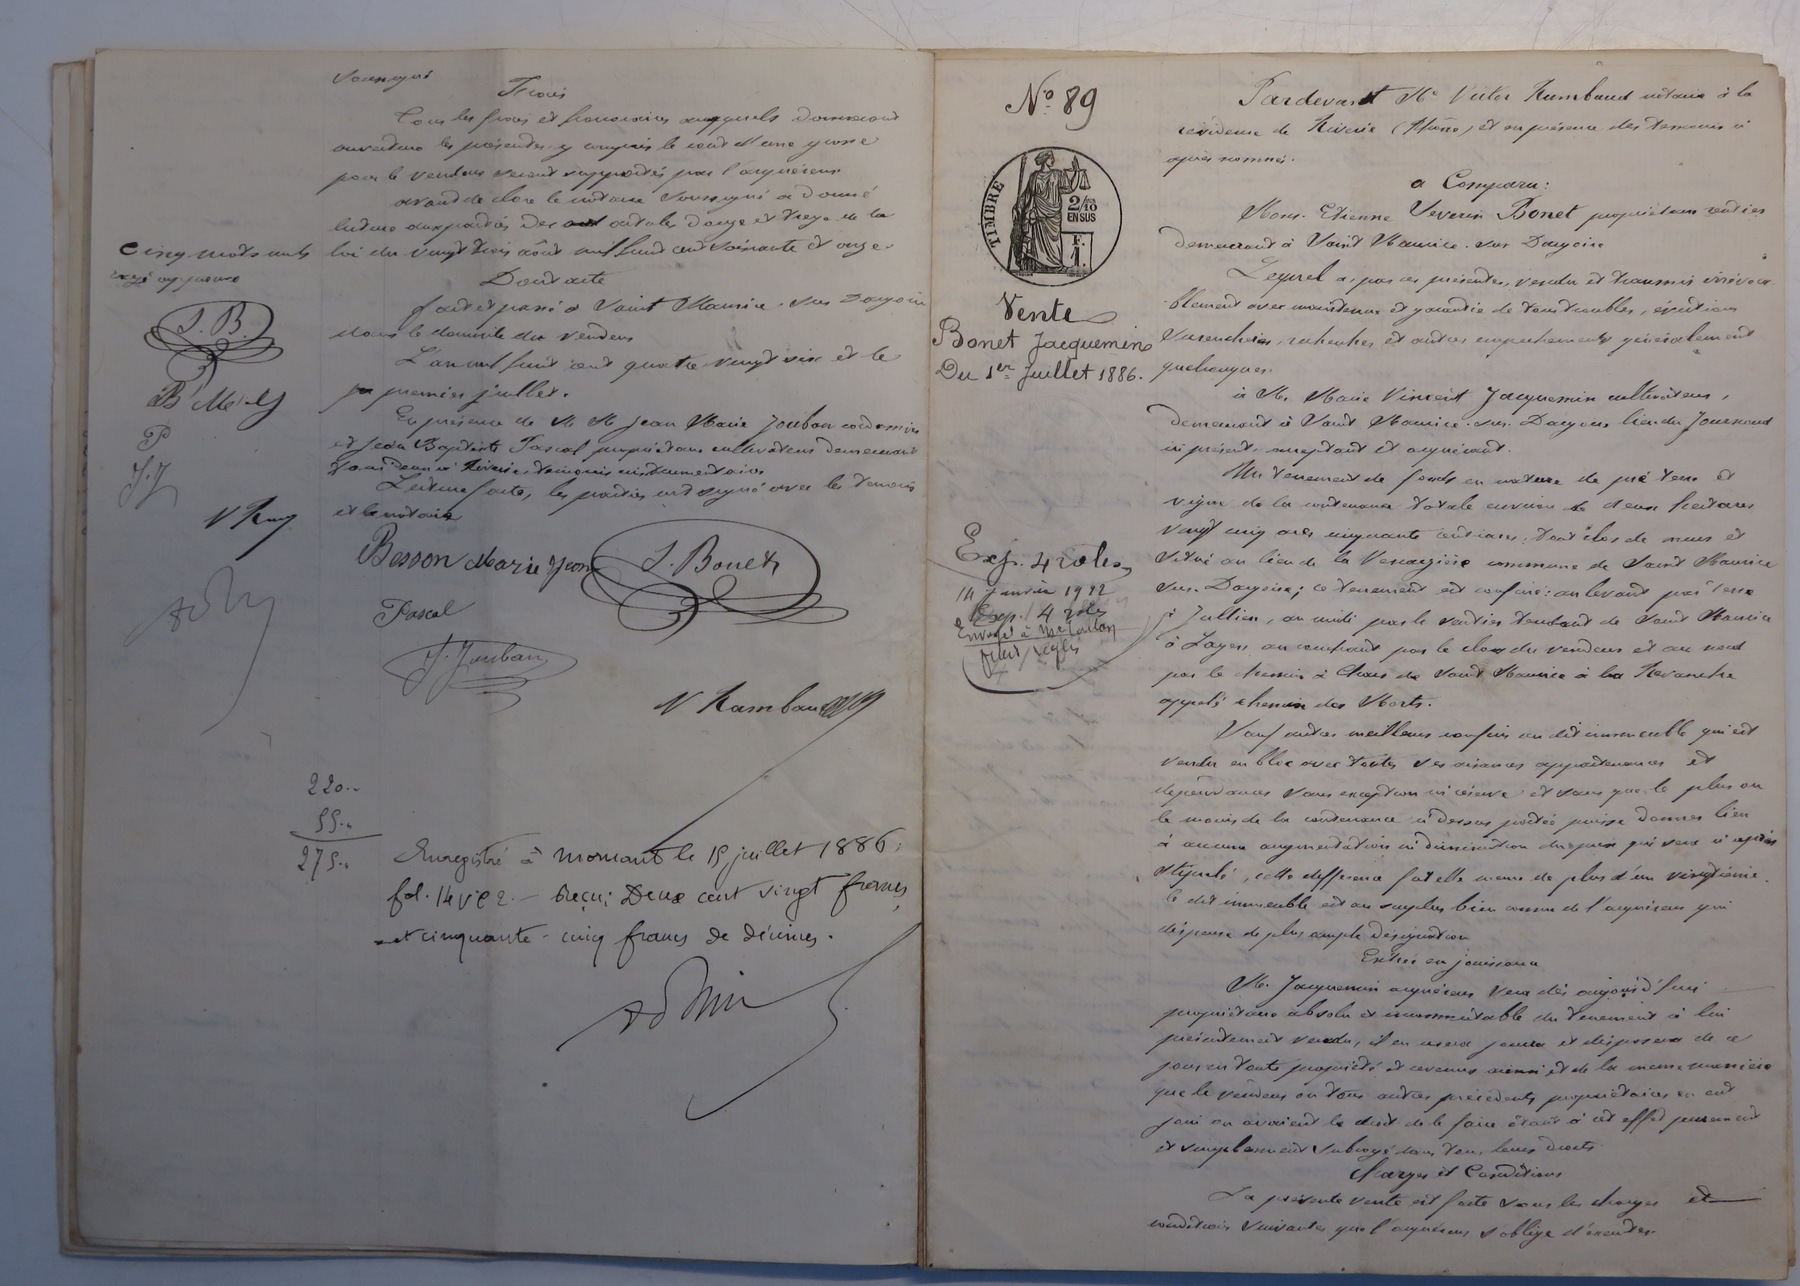 soussigné
Frais
Tous les frais et honoraires auxquels donneront
ouverture les présentes y compris le coût d'une grosse
pour le vendeur seront supportés par l'acquéreur
avant de clore le notaire soussigné a donné
lecture aux parties des articles douze et treize de la
loi du vingt trois août mil huit cent soixante et onze.
Cinq mots nuls
Dont acte
fait et passé à Saint Maurice sur Dargoire
dans le domicile du vendeur
L'an mil huit cent quatre vingt six et le
premier juillet.
En présence de M M Jean Marie Jouban cordonnier
et Jean Baptiste Pascal propriétaire cultivateur demeurant
tous deux à Riverie, témoins instrumentaires
Lecture faite, les parties ont signé avec les témoins
et le notaire
S. B.
P
J. J
V Ram
Besson Marie Jean
S. Bonet
Pascal
J. Jouban
V Rambaud
220..
55..
275..
Enregistré à Mornant le 15 juillet 1886;
fol. 14 v c 2. - Reçu: Deux cent vingt francs
et cinquante-cinq francs de décimes.
No. 89
TIMBRE
2/10
EN SUS
F.
1.
Vente
Bonet Jacquemin
Du 1er Juillet 1886.
Exp. 4 rôles
14 Janvier 1922
Exp. 4 rôles
Envoyé à Me
Pardevant Me Victor Rambaud notaire à la
résidence de Riverie (Rhône) et en présence des témoins ci
après nommés.
a Comparu:
Mons. Etienne Severin Bonet propriétaire rentier
demeurant à Saint Maurice sur Dargoire
Lequel a, par ces présentes, vendu et transmis irrévoca
blement avec maintenue et garantie de tous troubles, évictions
surenchères, recherches et autres empêchements généralement
quelconques.
à M. Marie Vincent Jacquemin cultivateur,
demeurant à Saint Maurice sur Dargoire lieu du Journoud
ici présent, acceptant et acquérant.
Un tenement de fonds en nature de pré terre et
vigne de la contenance totale environ de deux hectares
vingt cinq ares cinquante centiares, tout clos de murs et
situé au lieu de la commune de Saint Maurice
sur Dargoire; ce tenement est confiné: au levant par terre
à Jullien, au midi par le sentier tendant de Saint Maurice
à Layer, au couchant par le clos du vendeur et au nord
par le chemin à chars de Saint Maurice à la Revanche
appelé chemin des Morts.
Sauf autres meilleurs confins au dit immeuble qui est
vendu en bloc avec toutes ses aisances appartenances et
dépendances sans exception ni réserve et sans que le plus ou
le moins de la contenance ci dessus portée puisse donner lieu
à aucune augmentation ni diminution du prix qui sera ci après
stipulé, cette difference fut elle meme de plus d'un vingtième.
le dit immeuble est au surplus bien connu de l'acquéreur qui
dispense de plus ample désignation
Entrée en jouissance
M. Jacquemin acquéreur sera dès aujourd'hui
propriétaire absolu et incommutable du tenement à lui
présentement vendu, il en usera jouira et disposera de ce
jour en toute propriété et revenus ainsi et de la meme manière
que le vendeur ou tous autres précédents propriétaires en ont
joui ou avaient le droit de le faire étant à cet effet purement
et simplement subrogé dans tous leurs droits.
Charges et Conditions
La présente vente est faite sous les charges et
conditions suivantes que l'acquéreur s'oblige d'exécuter